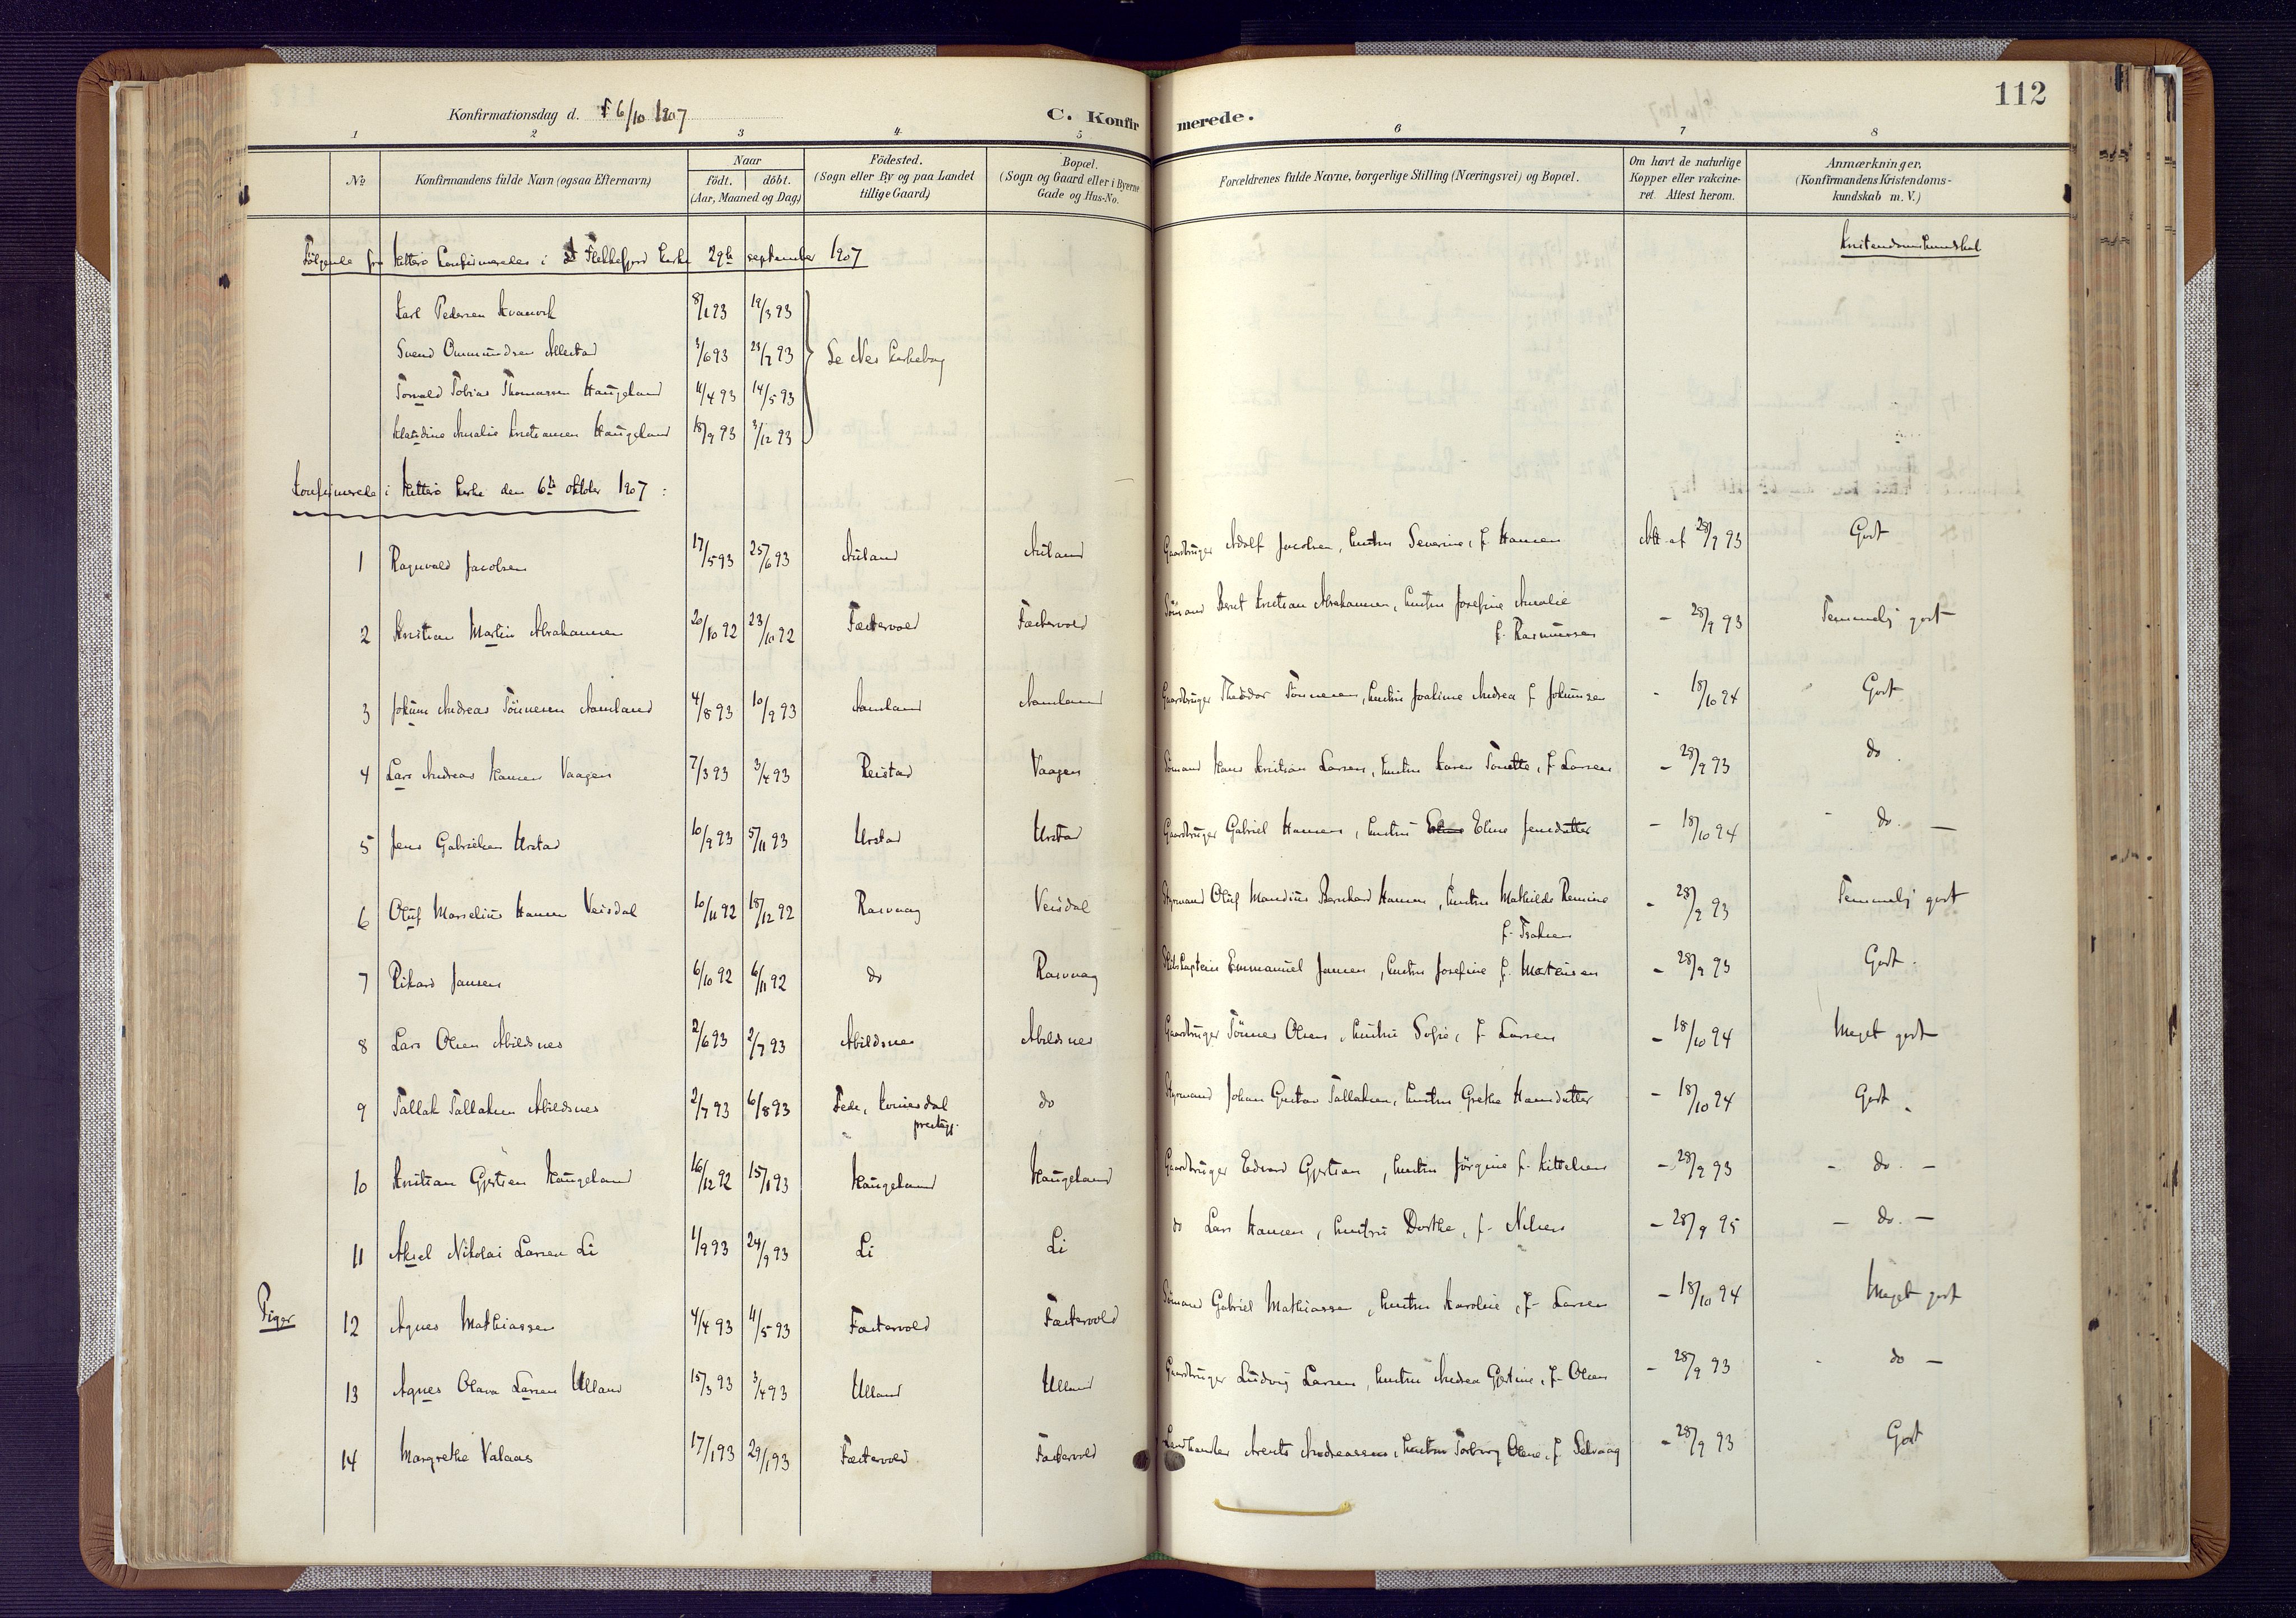 112
Konfirmationsdag d. 6/10 1907
C. Konfirmerede.
1 2 3 4 5 6 7 8
No
Konfirmandens fulde Navn (ogsaa Efternavn)
Naar
födt. döbt.
(Aar, Maaned og Dag)
Födested.
(Sogn eller By og paa Landet
tillige Gaard)
Bopæl.
(Sogn og Gaard eller i Byerne
Gade og Hus-No.
Forældrenes fulde Navne, borgerlige Stilling (Næringsvei) og Bopæl.
Om havt de naturlige
Kopper eller vakcine-
ret. Attest herom.
Anmærkninger.
(Konfirmandens Kristendoms-
kundskab m. V.)
Kristendomskundskab
Følgende fra Hitterø konfirmeredes i Flekkefjord kirke 29de september 1907
Karl Pedersen Kvanvik 8/1 93 19/3 93
Svend Ommundsen Allestad 3/6 93 23/7 93 Se Nes kirkebog
Torvald Tobias Thomassen Haugeland 11/4 93 14/5 93
Klaudine Amalie Kristiansen Haugeland 18/9 93 3/12 93
Konfirmerede i Hitterø kirke den 6te oktober 1907:
1 Ragnvald Jacobsen 17/5 93 25/6 93 Auland Auland Gaardbruger Adolf Jacobsen, hustru Severine, f. Hansen Att. af 28/9 93 Godt
2 Kristian Martin Abrahamsen 20/10 92 23/10 92 Fæstervold Fæstervold Sømand Berent Kristian Abrahamsen, hustru Josefine Amalie
f. Rasmussen - 28/9 93 Temmelig godt
3 Jokum Andreas Tønnesen Aamland 4/8 93 10/9 93 Aamland Aamland Gaardbruger Theodor Tønnesen, hustru Joakime Andrea f. Jokumsen - 18/10 94 Godt
4 Lars Andreas Hansen Vaagen 7/3 93 3/4 93 Reistad Vaagen Sømand Hans Kristian Larsen, hustru Karen Tonette, f. Larsen - 28/9 93 do.
5 Jens Gabrielsen Urstad 10/9 93 5/11 93 Urstad Urstad Gaardbruger Gabriel Hansen, hustru Eline Jensdatter - 18/10 94 - do. -
6 Oluf Marselius Hansen Veisdal 10/11 92 18/12 92 Rasvaag Veisdal Styrmand Oluf Mandius Bernhard Hansen, hustru Mathilde Remine
f. Isaksen - 28/9 93 Temmelig godt
7 Rikard Jansen 6/10 92 6/11 92 do Rasvaag Skibskaptein Emmanuel Jansen, hustru Josefine f. Mortensen - 28/9 93 Godt.
8 Lars Olsen Abildsnes 2/6 93 2/7 93 Abildsnes Abildsnes Gaardbruger Tønnes Olsen, hustru Sofie, f. Larsen - 18/10 94 Meget godt
9 Tallak Tallaksen Abildsnes 2/7 93 6/8 93 Fede, Kvinesdal
prestegj. do Styrmand Johan Gustav Tallaksen, hustru Grethe Hansdatter - 18/10 94 Godt.
10 Kristian Gjertsen Haugeland 16/12 92 15/1 93 Haugeland Haugeland Gaardbruger Edvard Gjertsen, hustru Jørgine f. Kittelsen - 28/9 93 - do. -
11 Aksel Nikolai Larsen Li 1/9 93 24/9 93 Li Li do Lars Hansen, hustru Dorthe, f. Nilsen - 28/9 95 - do. -
Piger
12 Agnes Mathiassen 4/4 93 11/5 93 Fæstervold Fæstervold Sømand Gabriel Mathiassen, hustru Karoline, f. Larsen - 18/10 94 Meget godt
13 Agnes Olava Larsen Ulland 15/3 93 3/4 93 Ulland Ulland Gaardbruger Ludvig Larsen, hustru Andrea Gjertine, f. Olsen - 28/9 93 - do -
14 Margrethe Valaas 17/1 93 29/1 93 Fæstervold Fæstervold Landhandler Arents Andreassen, hustru Torborg Olene, f. Selvaag - 28/9 93 Godt